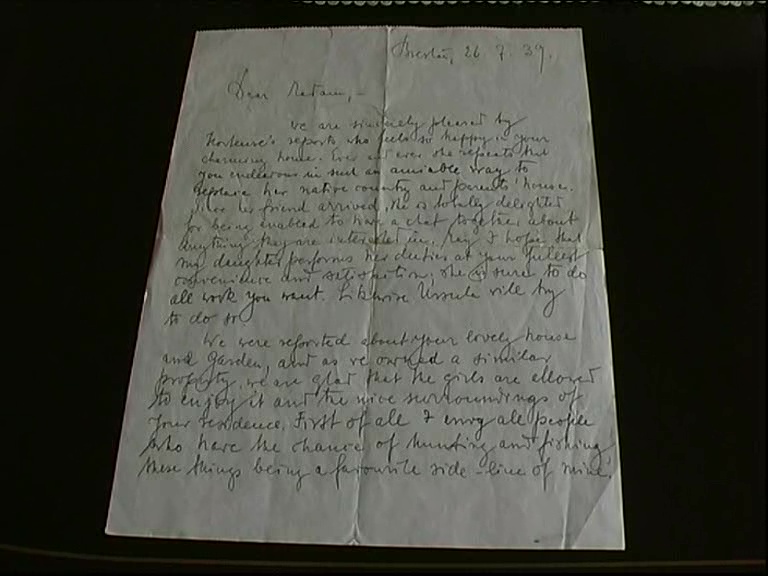 Breslau, 26. 7. 39.
Dear Madam, –
We are sincerely pleased by
Hortense's reports who feels so happy in your
charming home. Ever and ever she repeats that
you endeavour in such an amiable way to
replace her native country and parents' house.
her friend arrived, she is totally delighted
for being enabled to have a chat together about
anything they are interested in. May I hope that
my daughter performs her duties at your fullest
convenience and satisfaction; she is sure to do
all work you want. Likewise Ursula will try
to do so.
We were reported about your lovely house
and garden, and as we owned a similar
property, we are glad that the girls are allowed
to enjoy it and the nice surroundings of
your residence. First of all I envy all people
who have the chance of hunting and fishing
these things being a favourite side-line of mine.